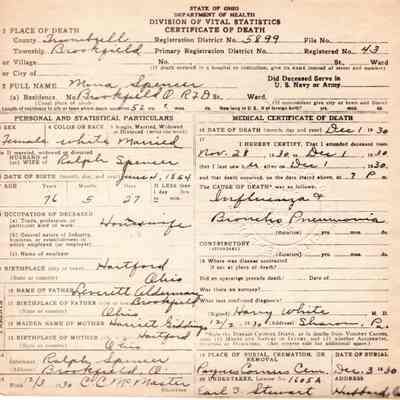 STATE OF OHIO
DEPARTMENT OF HEALTH
DIVISION OF VITAL STATISTICS
CERTIFICATE OF DEATH
1 PLACE OF DEATH
County Trumbull Registration District No. 5899 File No.
Township Brookfield Primary Registration District No. Registered No. 43
or Village No. St., Ward
or City of (If death occurred in a hospital or institution, give its name instead of street and number)
2 FULL NAME Mina Spencer Did Deceased Serve in U. S. Navy or Army
(a) Residence. No. Brookfield O. RFD St., Ward.
(Usual place of abode) (If nonresident give city or town and State)
Length of residence in city or town where death occurred
PERSONAL AND STATISTICAL PARTICULARS
3 SEX 4 COLOR OR RACE 5 Single, Married, Widowed or Divorced (write the word)
Female White Married
HUSBAND of
(or) WIFE of Ralph Spencer
6 DATE OF BIRTH (month, day, and year) June 4, 1854
7 AGE
76 5 27
8 OCCUPATION OF DECEASED
(a) Trade, profession or particular kind of work Housewife
(b) General nature of industry, business, or establishment in which employed (or employer)
(c) Name of employer
9 BIRTHPLACE (city or town) Hartford
(State or country) Ohio
10 NAME OF FATHER Leveritt Alderman
11 BIRTHPLACE OF FATHER Brookfield
(State or country) Ohio
12 MAIDEN NAME OF MOTHER Harriet Giddings
13 BIRTHPLACE OF MOTHER Hartford
(State or country) Ohio
14 Informant Ralph Spencer
(Address) Brookfield, O.
15 Filed 12/3 30 McMaster
MEDICAL CERTIFICATE OF DEATH
16 DATE OF DEATH (month, day and year) Dec 1 1930
17 I HEREBY CERTIFY, That I attended deceased from
Nov. 28, 1930, to Dec 1, 1930
that I last saw alive on Dec 1, 1930
and that death occurred, on the date stated above, at P m.
The CAUSE OF DEATH was as follows:
Influenza &
Broncho Pneumonia
(duration) yrs. mos. ds.
CONTRIBUTORY
(Secondary)
(duration) yrs. mos. ds.
18 Where was disease contracted
if not at place of death?
Did an operation precede death? Date of
Was there an autopsy?
What test confirmed diagnosis?
(Signed) Harry White M. D.
12/2, 1930 (Address) Sharon, Pa.
19 PLACE OF BURIAL, CREMATION, OR REMOVAL DATE OF BURIAL
Payne Corners Cem. Dec. 3 1930
20 UNDERTAKER, License No. 1605A
Earl T. Stewart